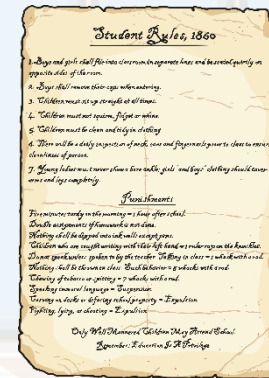 Student Rules, 1860
1. Boys and girls shall file into classroom in separate lines and be seated quietly on
opposite sides of the room.
2. Boys shall remove their caps when entering.
3. Children must sit up straight at all times.
4. Children must not squirm, fidget or whine.
5. Children must be clean and tidy in clothing
6. There will be a daily inspection of neck, ears and fingernails prior to class to ensure
cleanliness of person.
7. Young ladies must never show a bare ankle; girls' and boys' clothing should cover
arms and legs completely.
Punishments
Five minutes tardy in the morning = 1 hour after school.
Double assignments if homework is not done.
Nothing shall be dipped into ink wells except pens.
Children who are caught writing with their left hand = ruler raps on the knuckles.
Do not speak unless spoken to by the teacher. Talking in class = 1 whack with a rod.
Nothing shall be thrown in class. Such behavior = 5 whacks with a rod.
Chewing of tobacco or spitting = 7 whacks with a rod.
Speaking immoral language = Suspension
Carving on desks or defacing school property = Expulsion
Fighting, lying, or cheating = Expulsion
Only Well Mannered Children May Attend School.
Remember: Education Is A Privilege